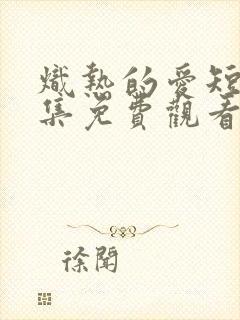 熾熱的愛短
集免費觀看
徐聞